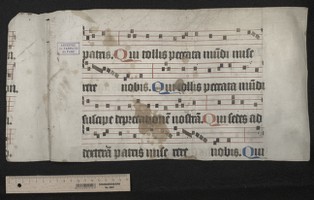 patris. Qui tollis peccata mūdi mise
rere nobis. Qui tollis peccata mūdi
suscipe deprecationē nostrā. Qui sedes ad
dexterā patris mise rere nobis. Qui